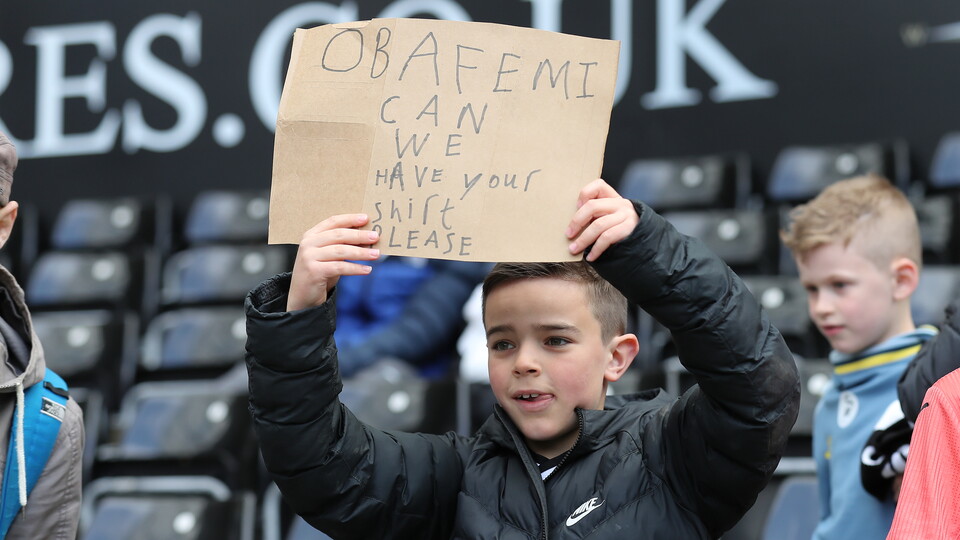 RES.CO.UK
OBAFEMI
CAN
WE
HAVE your
shirt
PLEASE
NIKE